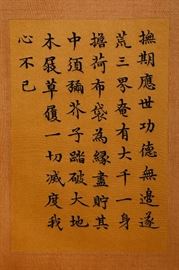 撫期應世功德無邊遂
荒三界奄有大千一身
擔荷布袋為緣盡貯其
中須彌芥子踏破大地
木屐草履一切滅度我
心不已